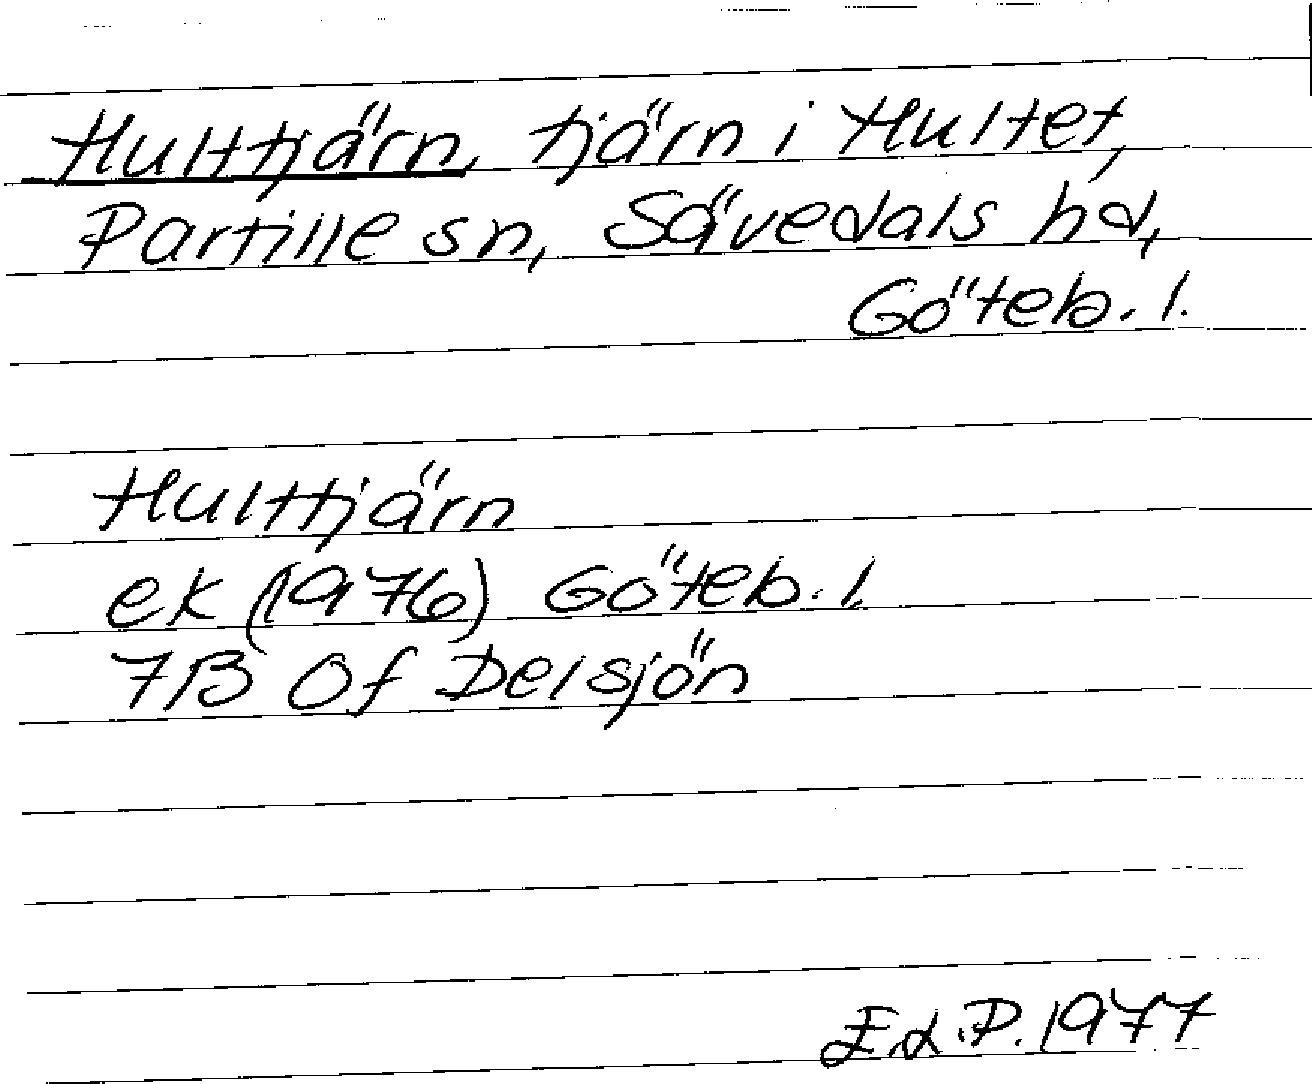 Hulttjärn, tjärn i Hultet,
Partille sn, Sävedals hd,
Göteb. l.
Hulttjärn
ek (1976) Göteb. l.
7B 0f Delsjön
E.d.P. 1977